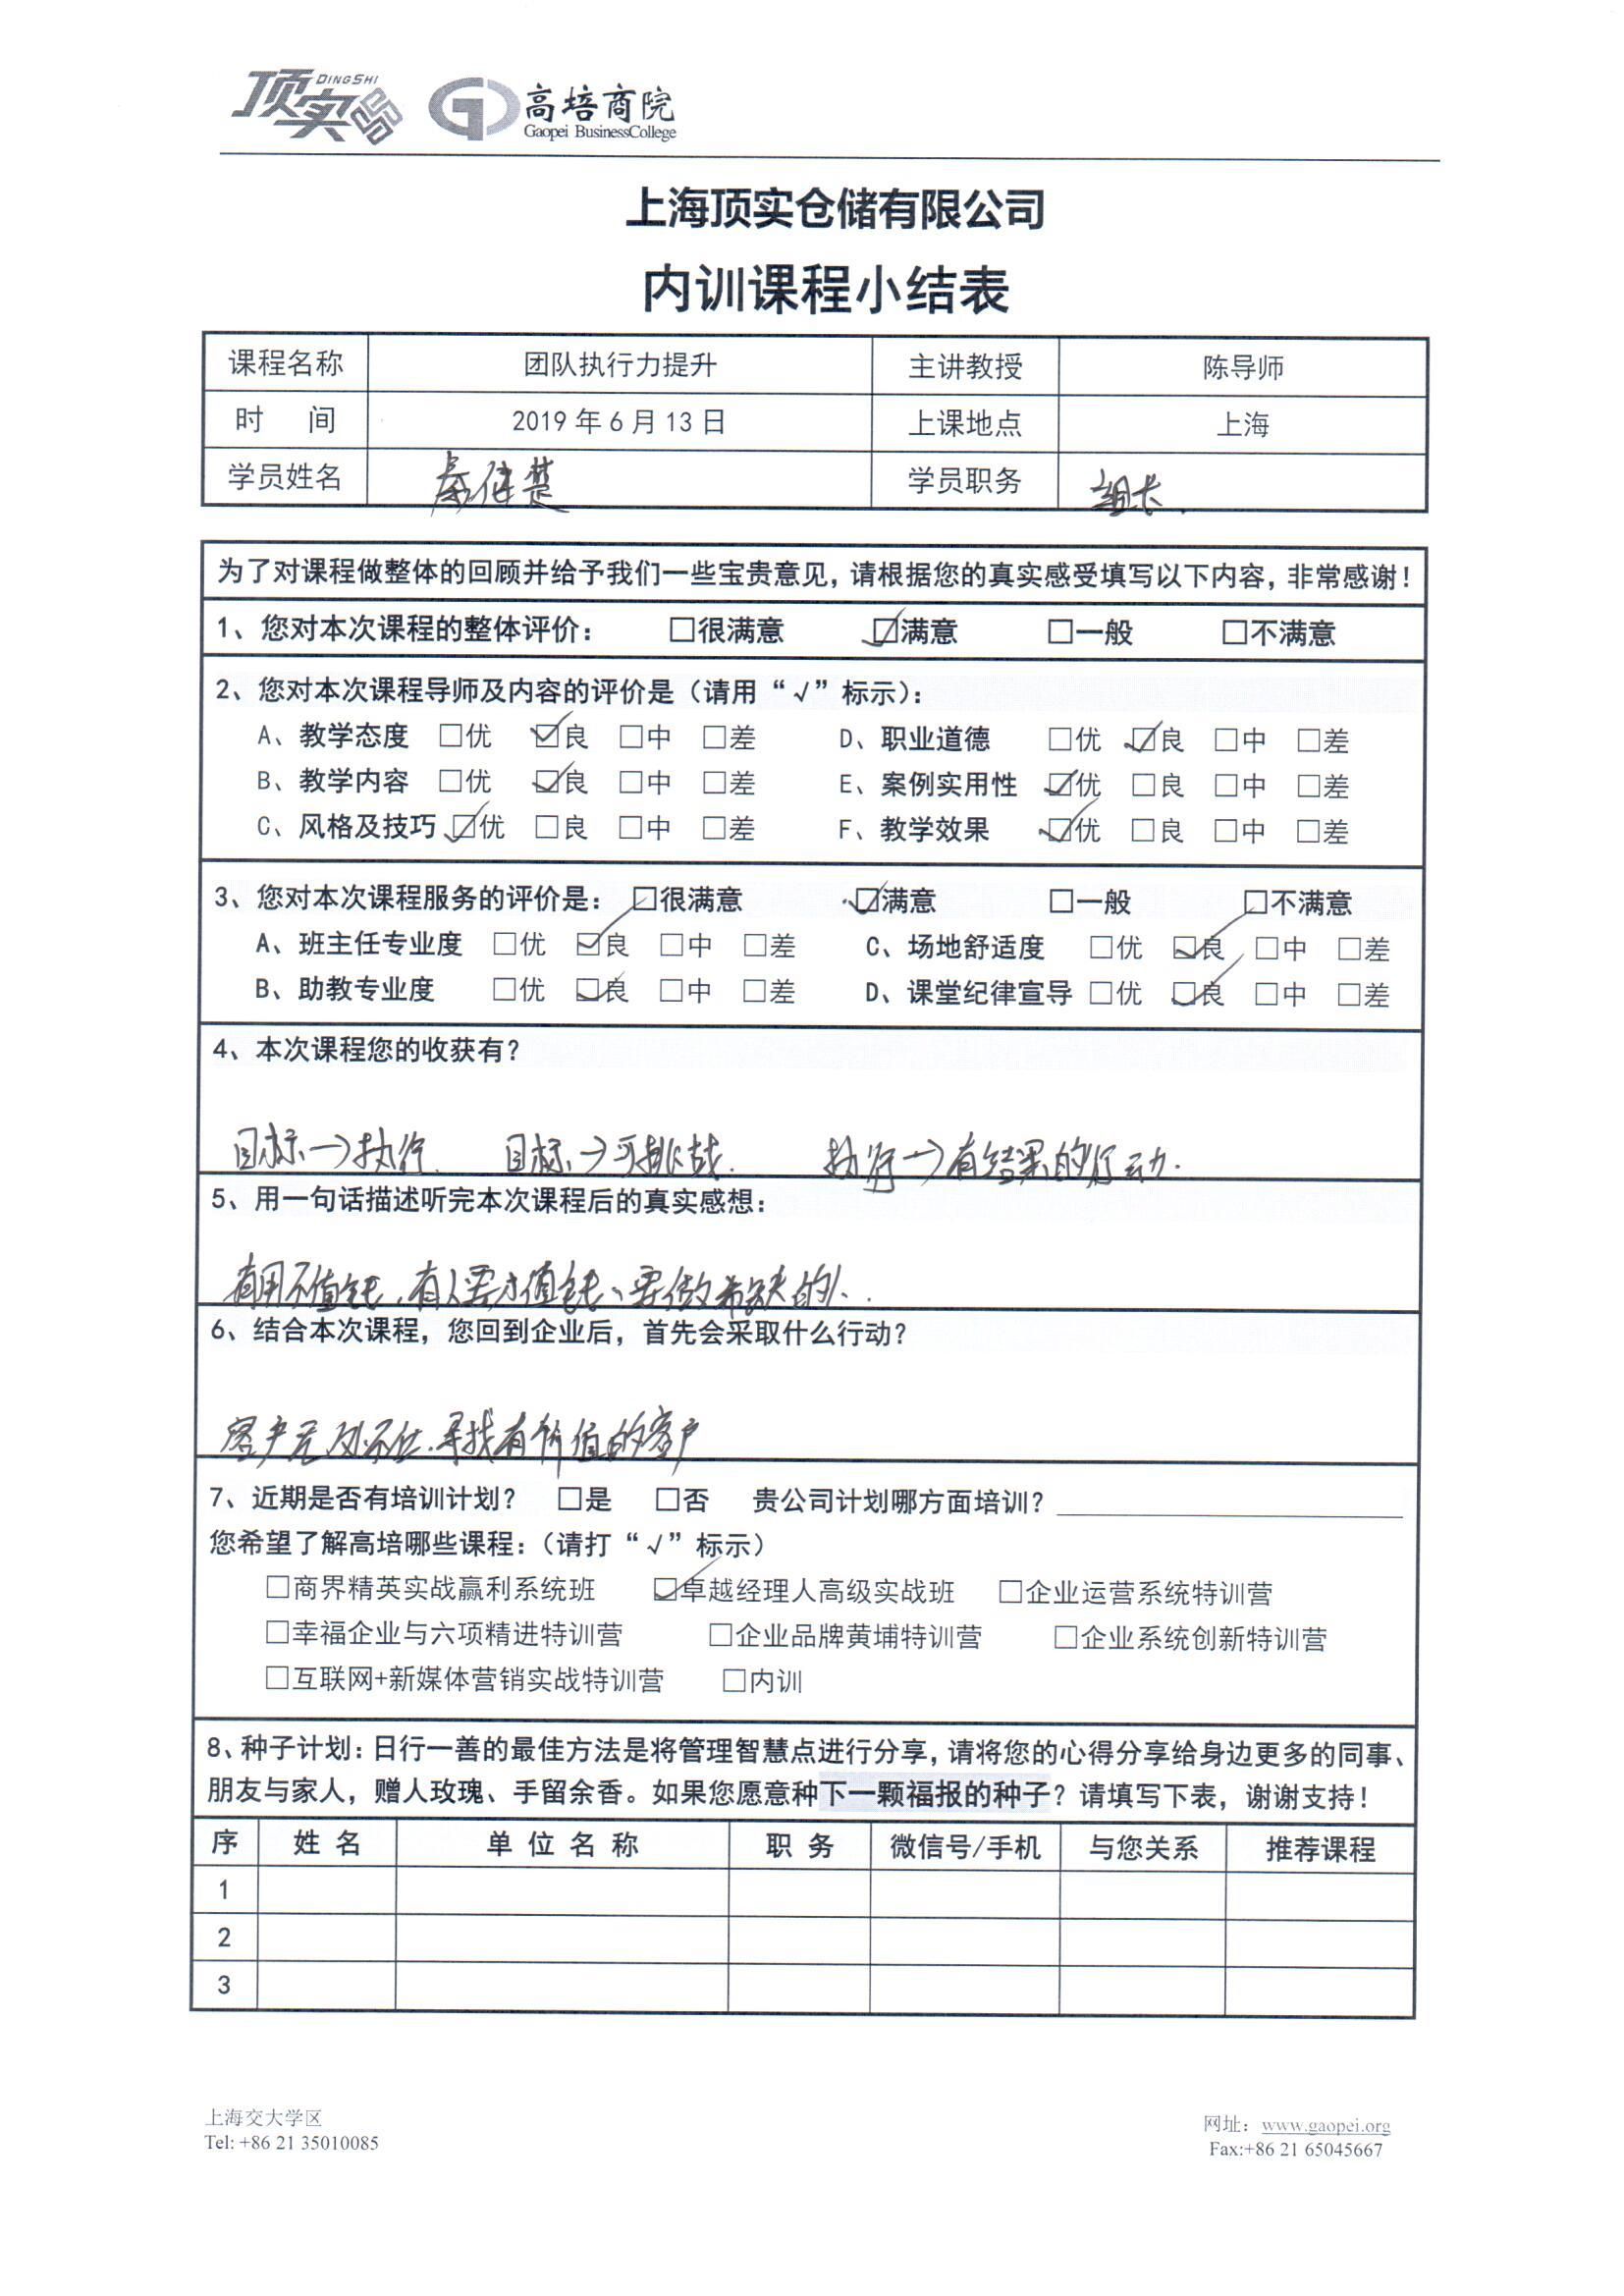 顶实 DINGSHI 高培商院
Gaopei BusinessCollege
上海顶实仓储有限公司
内训课程小结表
课程名称 团队执行力提升 主讲教授 陈导师
时 间 2019年6月13日 上课地点 上海
学员姓名 秦继楚 学员职务 组长.
为了对课程做整体的回顾并给予我们一些宝贵意见,请根据您的真实感受填写以下内容,非常感谢!
1、您对本次课程的整体评价: □很满意 ☑满意 □一般 □不满意
2、您对本次课程导师及内容的评价是(请用“√”标示):
A、教学态度 □优 ☑良 □中 □差 D、职业道德 □优 ☑良 □中 □差
B、教学内容 □优 ☑良 □中 □差 E、案例实用性 ☑优 □良 □中 □差
C、风格及技巧 ☑优 □良 □中 □差 F、教学效果 ☑优 □良 □中 □差
3、您对本次课程服务的评价是: □很满意 ☑满意 □一般 □不满意
A、班主任专业度 □优 ☑良 □中 □差 C、场地舒适度 □优 ☑良 □中 □差
B、助教专业度 □优 ☑良 □中 □差 D、课堂纪律宣导 □优 ☑良 □中 □差
4、本次课程您的收获有?
目标→执行. 目标→可挑战. 执行→有结果的行动.
5、用一句话描述听完本次课程后的真实感想:
有用不值钱,有人要才值钱、要做稀缺的、.
6、结合本次课程,您回到企业后,首先会采取什么行动?
客户无处不在.寻找有价值的客户
7、近期是否有培训计划? □是 □否 贵公司计划哪方面培训?
您希望了解高培哪些课程:(请打“√”标示)
□商界精英实战赢利系统班 ☑卓越经理人高级实战班 □企业运营系统特训营
□幸福企业与六项精进特训营 □企业品牌黄埔特训营 □企业系统创新特训营
□互联网+新媒体营销实战特训营 □内训
8、种子计划:日行一善的最佳方法是将管理智慧点进行分享,请将您的心得分享给身边更多的同事、
朋友与家人,赠人玫瑰、手留余香。如果您愿意种下一颗福报的种子?请填写下表,谢谢支持!
序 姓 名 单 位 名 称 职 务 微信号/手机 与您关系 推荐课程
1
2
3
上海交大学区 网址:www.gaopei.org
Tel: +86 21 35010085 Fax:+86 21 65045667